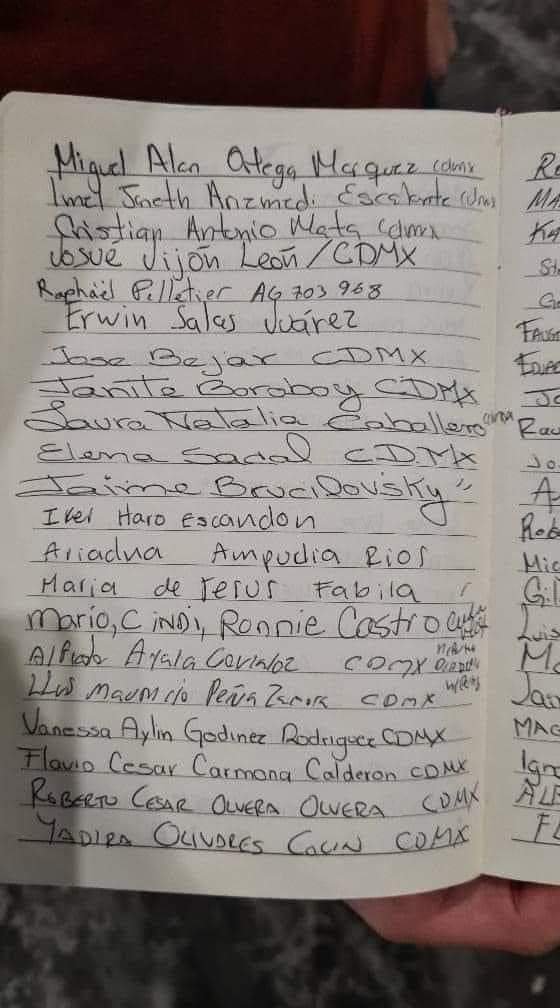 Miguel Alan Ortega Marquez cdmx
Imel Janeth Escalante cdmx
Cristian Antonio Mata cdmx
Josué Jijón León/CDMX
Raphaël Pelletier AG 703 968
Erwin Salas Juárez
Jose Bejar CDMX
Janite Boroboy CDMX
Laura Natalia Caballero CDMX
Elena Sacal CDMX
Jaime Brucilovsky "
Irei Haro Escandon
Ariadna Ampudia Rios
Maria de Jesus Fabila
Mario, Cindi, Ronnie Castro
Alfredo Ayala CDMX
Luis Mauricio Peña CDMX
Vanessa Aylin Godinez Rodriguez CDMX
Flavio Cesar Carmona Calderon CDMX
ROBERTO CESAR OLVERA OLVERA CDMX
YADIRA OLIVARES COLIN CDMX